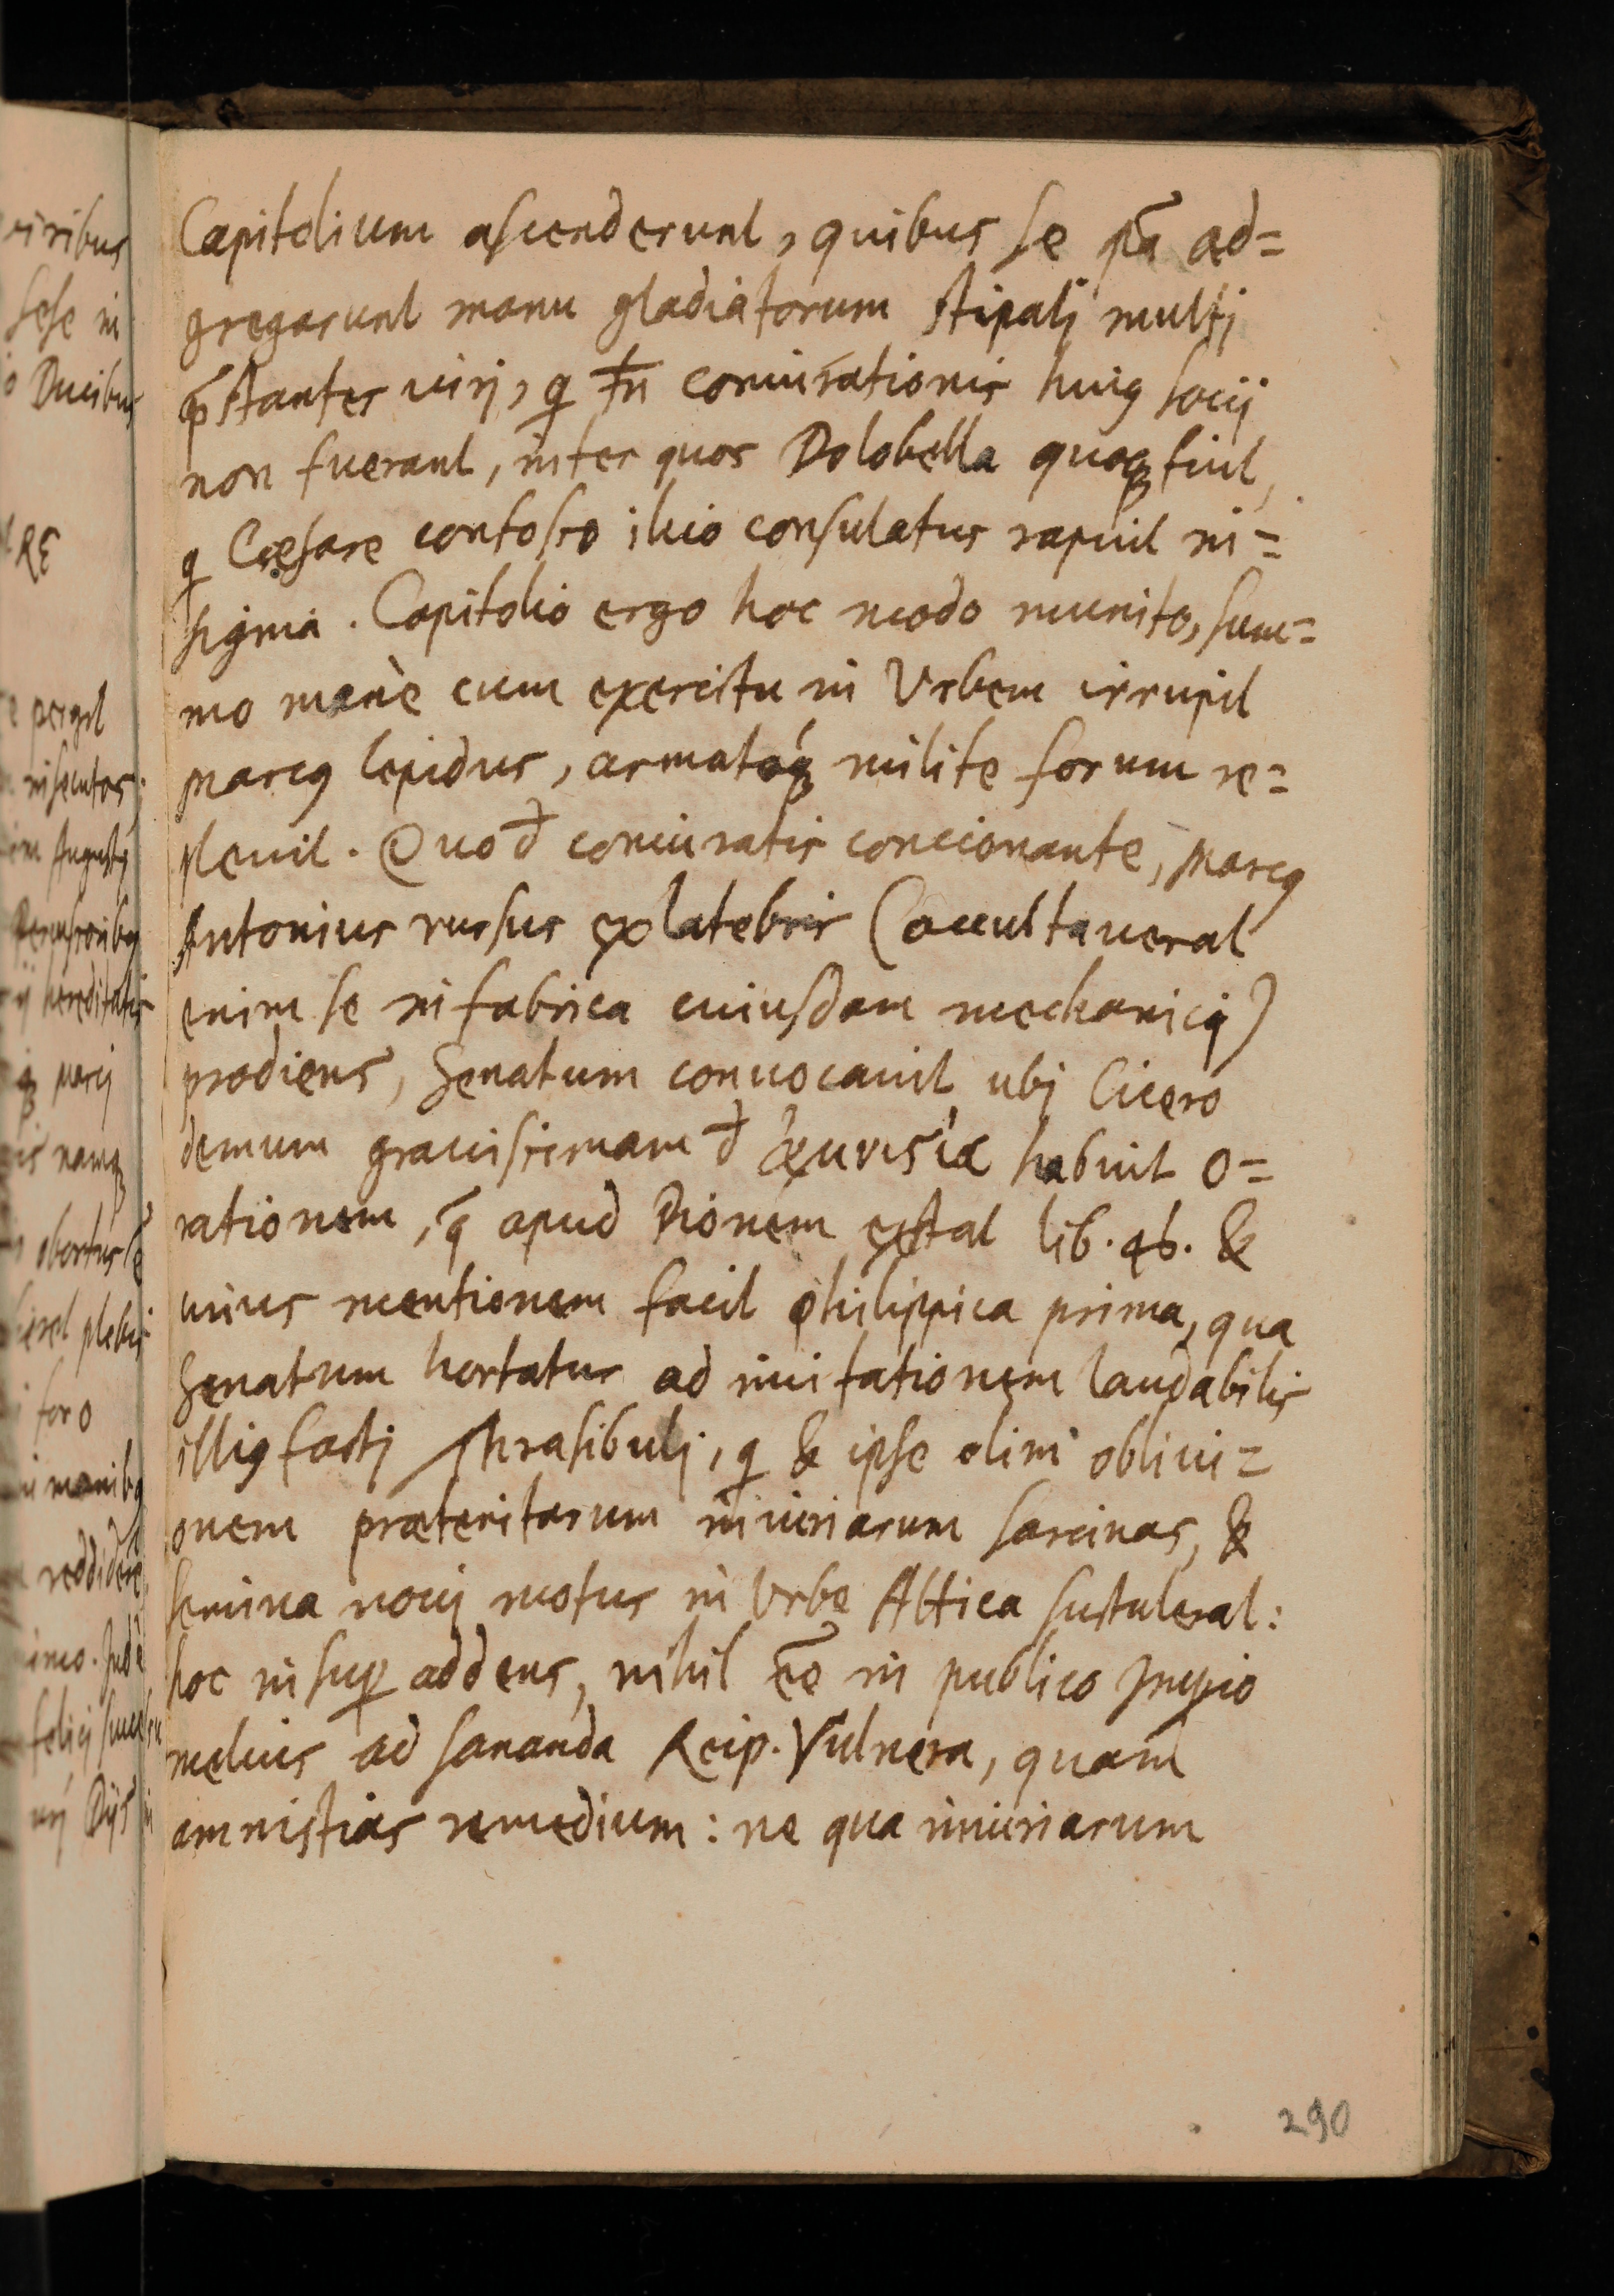 Capitolium ascenderunt, quibus se p̃a ad=
gregarunt manu gladiatorum stipatj multj
p̃stantes uirj, q̃ tñ coniurationis huiꝯ socij
non fuerant, inter quos Dolobella quoqꝫ fuit,
q Cæsare confosso illico consulatus rapuit in=
signia. Capitolio ergo hoc modo munito, sum=
mo manè cum exercitu in Vrbem irrupit
Marcꝯ Lepidus, armatóqꝫ milite forum re=
pleuit. Quo đ coniuratis concionante, Marcꝯ
Antonius rursus ex latebris (occultauerat
enim se in fabrica cuiusdam mechanicj)
prodiens, Senatum conuocauit ubj Cicero
demum grauissimam đ habuit o=
rationem, q̃ apud Dionem extat lib. 46. &
uius mentionem facit Philippica prima, qua
Senatum hortatur ad imitationem laudabilis
illiꝯ factj Thrasibulj, q & ipse olim obliui=
onem præteritarum iniuriarum sarcinas, &
semina nouj motus in Vrbe Attica sustulerat:
hoc insuꝑ addens, nihil eẽ in publico
melius ad sananda Reip. Vulnera, quam
amnistias remedium: ne qua iniuriarum
290